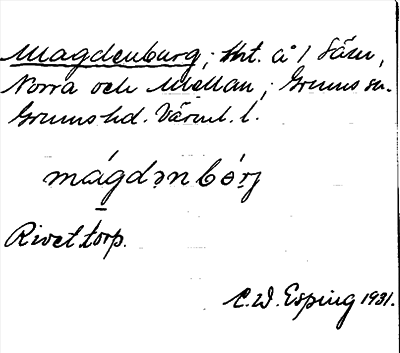 Magdenburg; hmt. å 1 Säm,
Norra och Mellan; Grums sn.
Grums hd. Värml. l.
mágdənbórj
Rivet torp.
C.W. Esping 1931.